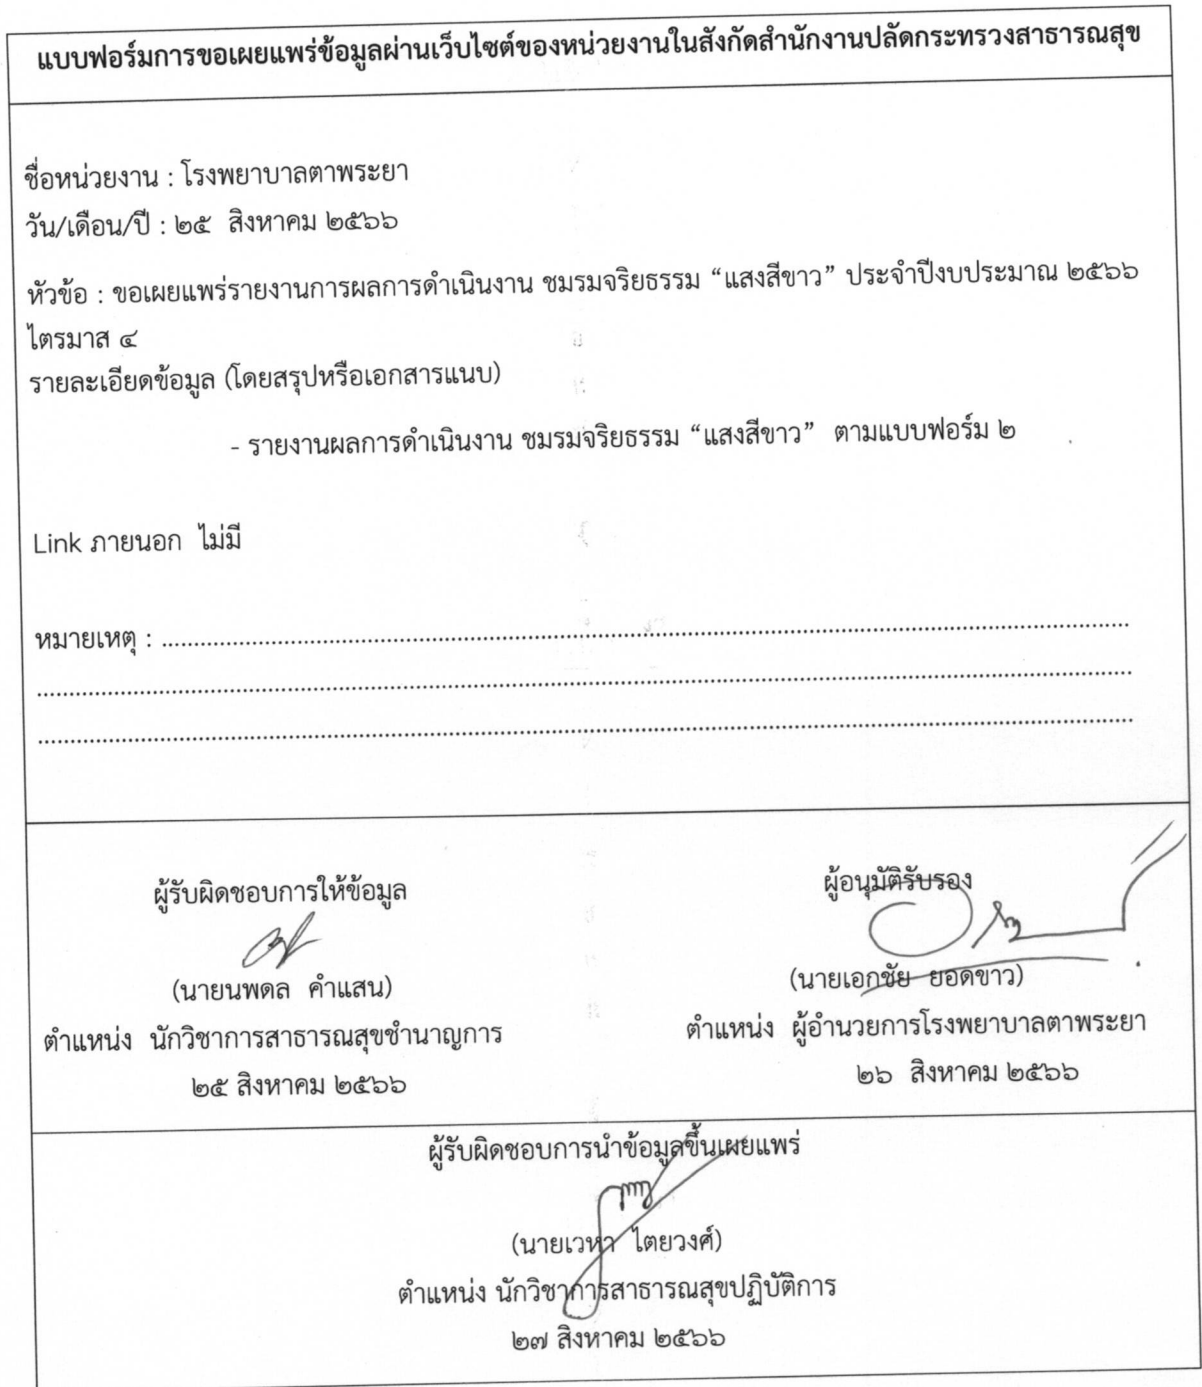 แบบฟอร์มการขอเผยแพร่ข้อมูลผ่านเว็บไซต์ของหน่วยงานในสังกัดสำนักงานปลัดกระทรวงสาธารณสุข
ชื่อหน่วยงาน : โรงพยาบาลตาพระยา
วัน/เดือน/ปี : ๒๕ สิงหาคม ๒๕๖๖
หัวข้อ : ขอเผยแพร่รายงานการผลการดำเนินงาน ชมรมจริยธรรม “แสงสีขาว” ประจำปีงบประมาณ ๒๕๖๖
ไตรมาส ๔
รายละเอียดข้อมูล (โดยสรุปหรือเอกสารแนบ)
- รายงานผลการดำเนินงาน ชมรมจริยธรรม “แสงสีขาว” ตามแบบฟอร์ม ๒
Link ภายนอก ไม่มี
หมายเหตุ :
ผู้รับผิดชอบการให้ข้อมูล
(นายนพดล คำแสน)
ตำแหน่ง นักวิชาการสาธารณสุขชำนาญการ
๒๕ สิงหาคม ๒๕๖๖
ผู้อนุมัติรับรอง
(นายเอกชัย ยอดขาว)
ตำแหน่ง ผู้อำนวยการโรงพยาบาลตาพระยา
๒๖ สิงหาคม ๒๕๖๖
ผู้รับผิดชอบการนำข้อมูลขึ้นเผยแพร่
(นายเวหา ไตยวงศ์)
ตำแหน่ง นักวิชาการสาธารณสุขปฏิบัติการ
๒๗ สิงหาคม ๒๕๖๖